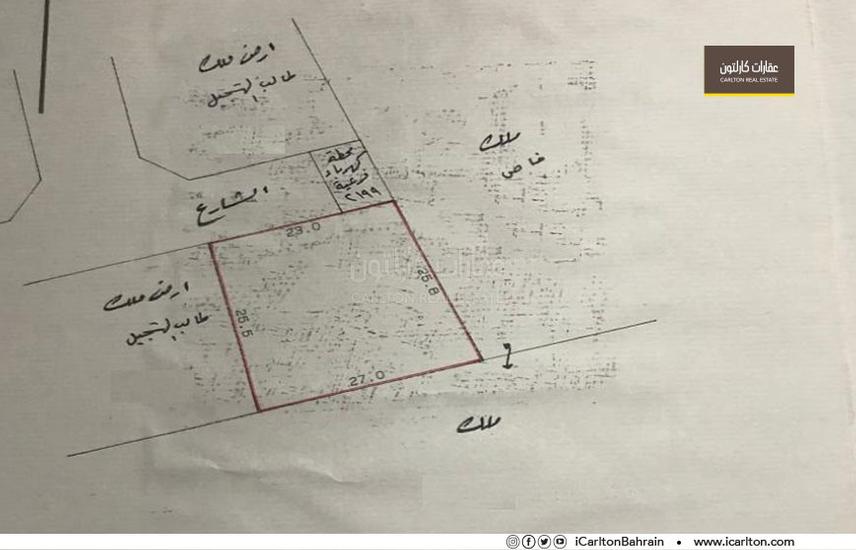 عقارات كارلتون
CARLTON REAL ESTATE
ارض ملك
طالب التسجيل
ملك
خاص
محطة
كهرباء
فرعية
٢١٩٩
الشارع
23.0
ارض ملك
طالب التسجيل
25.8
25.5
27.0
ملك
عقارات كارلتون
CARLTON REAL ESTATE
iCarltonBahrain • www.icarlton.com